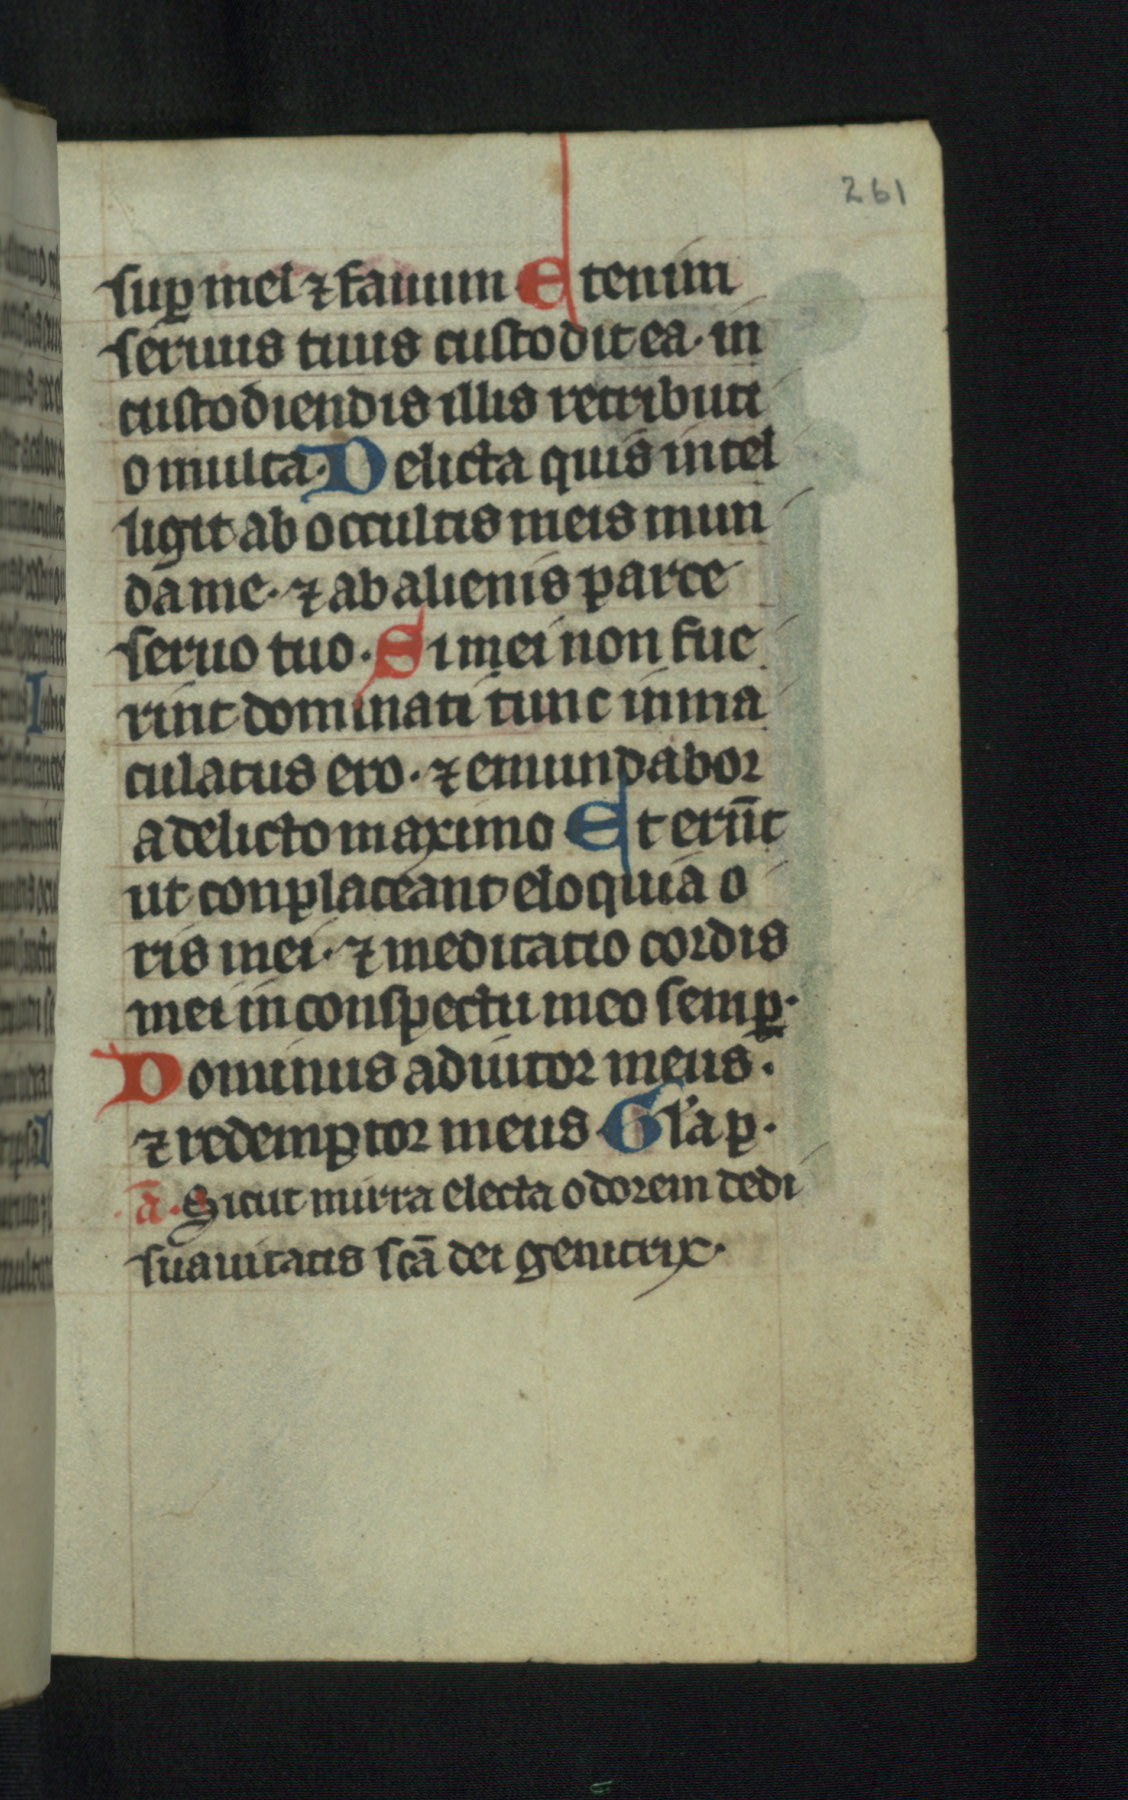 261
sup mel ⁊ fauum Etenim
seruus tuus custodit ea · in
custodiendis illis retributi
o multa · Delicta quis intel
ligit ab occultis meis mun
da me · ⁊ ab alienis parce
seruo tuo · Si mei non fue
rint dominati tunc inma
culatus ero · ⁊ emundabor
a delicto maximo Et erūt
ut conplaceant eloquia o
ris mei · ⁊ meditatio cordis
mei in conspectu meo semꝑ ·
Dominus adiutor meus ·
⁊ redemptor meus Gl'a p ·
a͞ · Sicut mirra electa odorem dedi
suauitatis scā dei genitrix ·